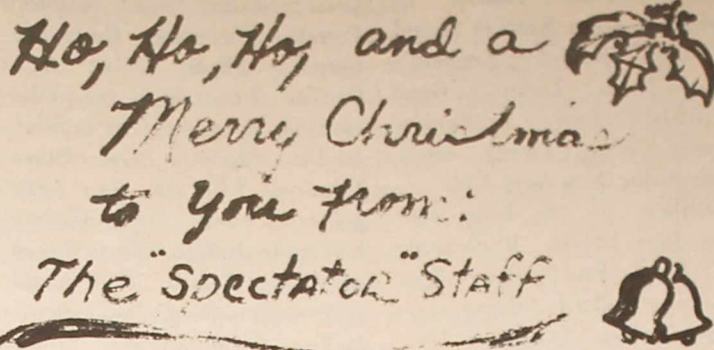 Ho, Ho, Ho, and a
Merry Christmas
to you from:
The "Spectator" Staff